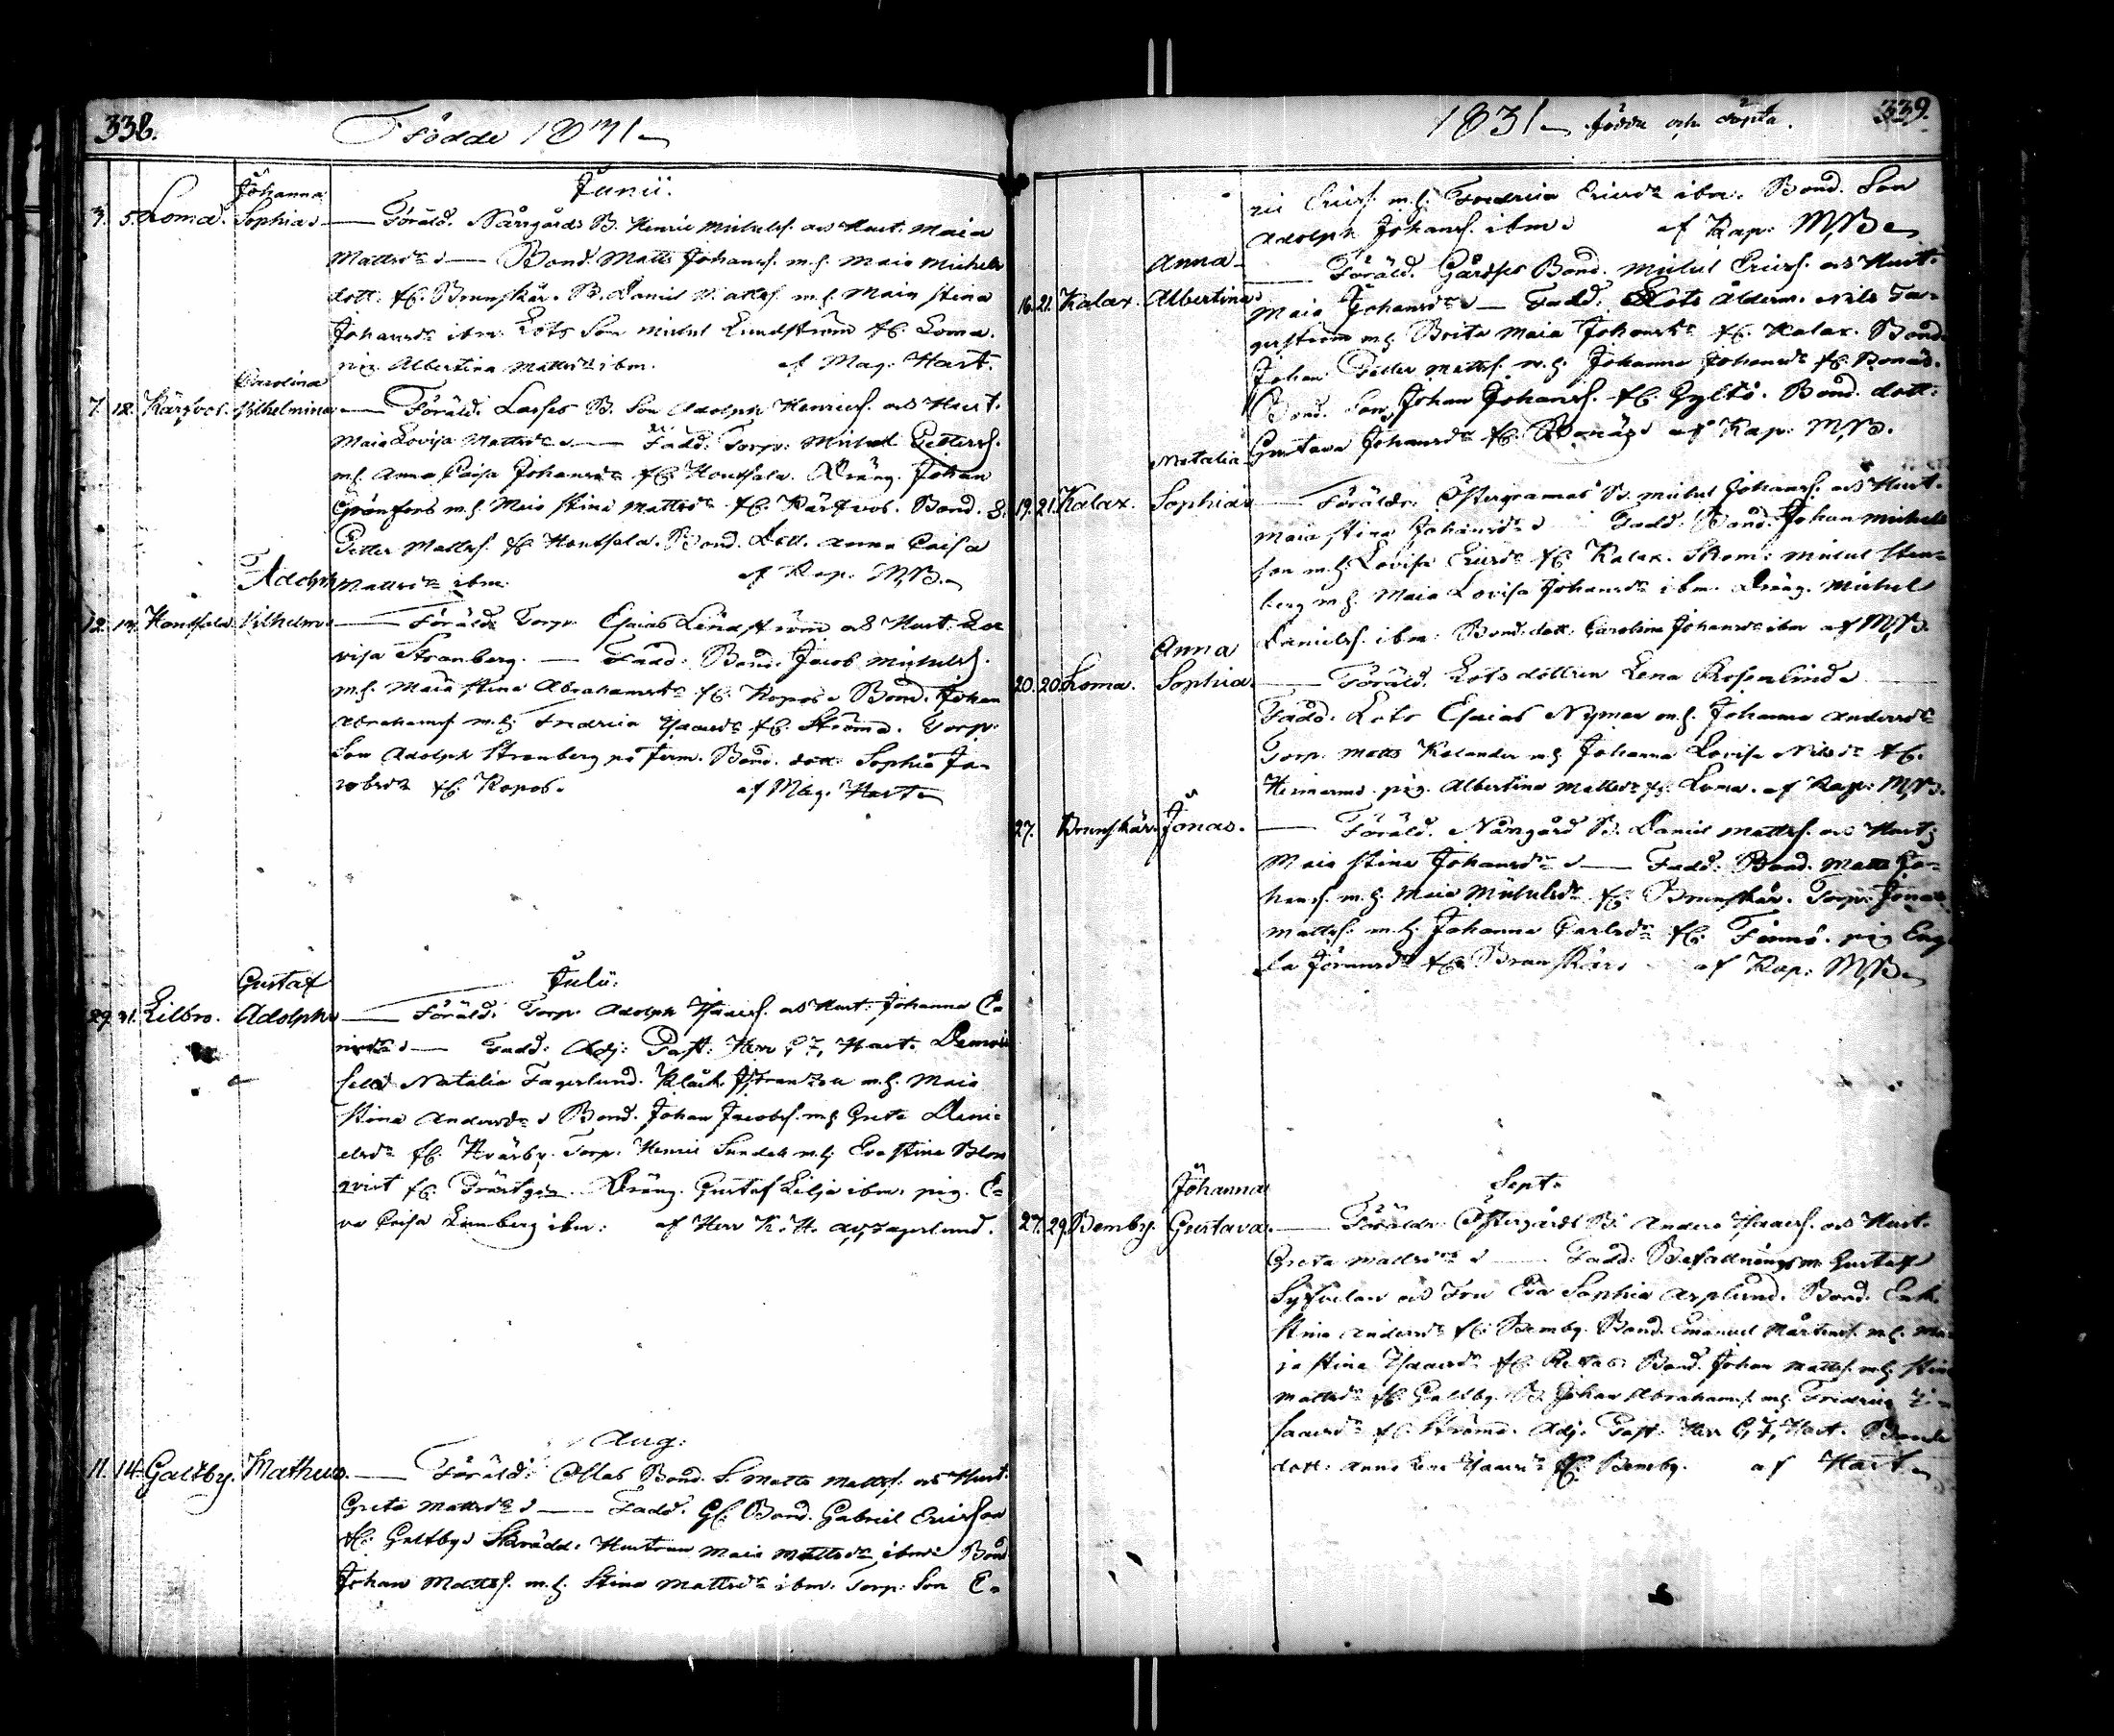 338.
Födde 1831
Junii.
Johanna
3. 5. Loma. Sophia — Föräld. Nårrgårds B. Henric Michelss. och Hust. Maia
Mattsdr — Bond. Matts Johanss. m.h. Maia Michels
dott. fr. Brunskär. B. Daniel Mattss. m.h. Maia Stina
Johansdr ibm. Lots Son Michel Lundström fr. Loma.
pig. Albertina Mattsdr ibm. af Mag. Hart.
Carolina
7. 12. Kärfvos. Vilhelmina — Föräld. Lasses B. Son Adolph Henricss. och Hust.
Maia Lovisa Mattsdr — Fadd. Torp. Michel Petterss.
m.h. Anna Caisa Johansdr fr. Houtsala. Dräng. Johan
Grönfors m.h. Maia Stina Mattsdr fr. Kärfvos. Bond. S.
Petter Mattss. fr. Houtsala. Bond. Dott. Anna Caisa
Mattsdr ibm. af Kap. M,B.
Adolph
12. Houtsala Vilhelm — Föräld. Torp. Esaias Lindström och Hust. Lo
visa Stranberg. — Fadd: Bond. Jacob Michelss.
m.h. Maia Stina Abrahamsdr fr. Kopos. Bond. Johan
Abrahamss. m.h. Fredrica Isaacsdr fr. Ströma. Torp.
Son Adolph Stranberg på Jerm. Bond. dott. Sophia Ja-
cobsdr fr. Kopos. af Mag. Hart
Julii.
Gustaf
29. 31. Lilbro. Adolph — Föräld. Torp. Adolph Isaacss. och Hust. Johanna E-
ricsdr — Fadd: Adj: Past: Herr G F, Hart. Demoi
selle Natalia Fagerlund. Klåck. m.h. Maia
Stina Andersdr Bond. Johan Jacobss. m.h. Greta Dani-
elsdr fr. Kvärby. Torp. Henric Sundell m.h. Eva Stina Blom
qvist fr. Prästgn. Dräng. Gustaf Lilja ibm. pig. E-
va Caisa Limberg ibm: af Herr K. H. Fagerlund.
Aug:
11. 14. Galtby. Matheus. — Föräld: Ollas Bond. S. Matts Mattss. och Hust.
Greta Mattsdr — Fadd. Gl. Bond. Gabriel Ericsson
fr. Galtby Skrädd. Hustrun Maia Mattsdr ibm. Bond
Johan Mattss. m.h. Stina Mattsdr ibm. Torp. Son E-
1831 födde och döpta. 339.
ric Ericss. m.h. Fredrica Ericsdr ibm. Bond. Son
Adolph Johanss. ibm af Kap: M,B
Anna
16. 21. Kalax. Albertina — Föräld. Gårdses Bond. Michel Ericss. och Hust.
Maia Johansdr — Fadd. Lots Ålderm. Nils Fa-
gerström m.h. Brita Maia Johansdr fr. Kalax. Bond
Johan Petter Mattss. m.h. Johanna Johansdr fr. Bonäs.
Bond. Son Johan Johanss. fr. Gyltö. Bond. dott:
Gustava Johansdr fr. Bonäs af Kap: M,B.
Natalia
19. 21. Kalax. Sophia — Föräldr. Östergramas B. Michel Johanss. och Hust.
Maia Stina Johansdr Fadd. Bond. Johan Michels
son m.h. Lovisa Ericsdr fr. Kalax. Skom: Michel Sten-
berg m.h. Maia Lovisa Johansdr ibm. Dräng. Michel
Danielss. ibm: Bond. dott: Carolina Johansdr ibm af M,B.
Anna
20. 20. Loma. Sophia. — Föräld. Lots dottren Lena Rosenlind
Fadd. Lots Esaias Nyman m.h. Johanna Andersdr
Torp. Matts Kalander m.h. Johanna Lovisa Nilsdr fr.
Heimarmo. pig. Albertina Mattsdr fr. Loma. af Kap: M,B.
27. Brunskär. Jonas. — Föräld. Nårrgård B. Daniel Mattss. och Hust
Maia Stina Johansdr — Fadd: Bond. Matts Jo-
hanss. m.h. Maia Michelsdr fr. Brunskär. Torp: Jonas
Mattss. m.h. Johanna Carlsdr fr. Finnö. pig Eng
la Jönnsdr fr. Brunskär af Kap: M,B
Sept.
Johanna
27. 29. Bemby. Gustava. — Föräldr. Östergårds B. Anders Isaacss. och Hust.
Greta Mattsdr — Fadd: Befallningsm. Gustaf
och Fru Eva Sophia Asplund. Bond. Enk.
Stina Andersdr fr. Bemby. Bond. Emanuel Mårtenss. m.h. Ma
ja Stina Isaacsdr fr. Retas Bond. Johan Mattss. m.h. Stina
Mattsdr fr. Galtby. B. Johan Abrahamss. m.h. Fredrica I-
saacsdr fr. Ströma. Adj. Past. Herr G F, Hart. Bonde
dott: Anna Lena Isaacsdr fr. Bemby. af Hart